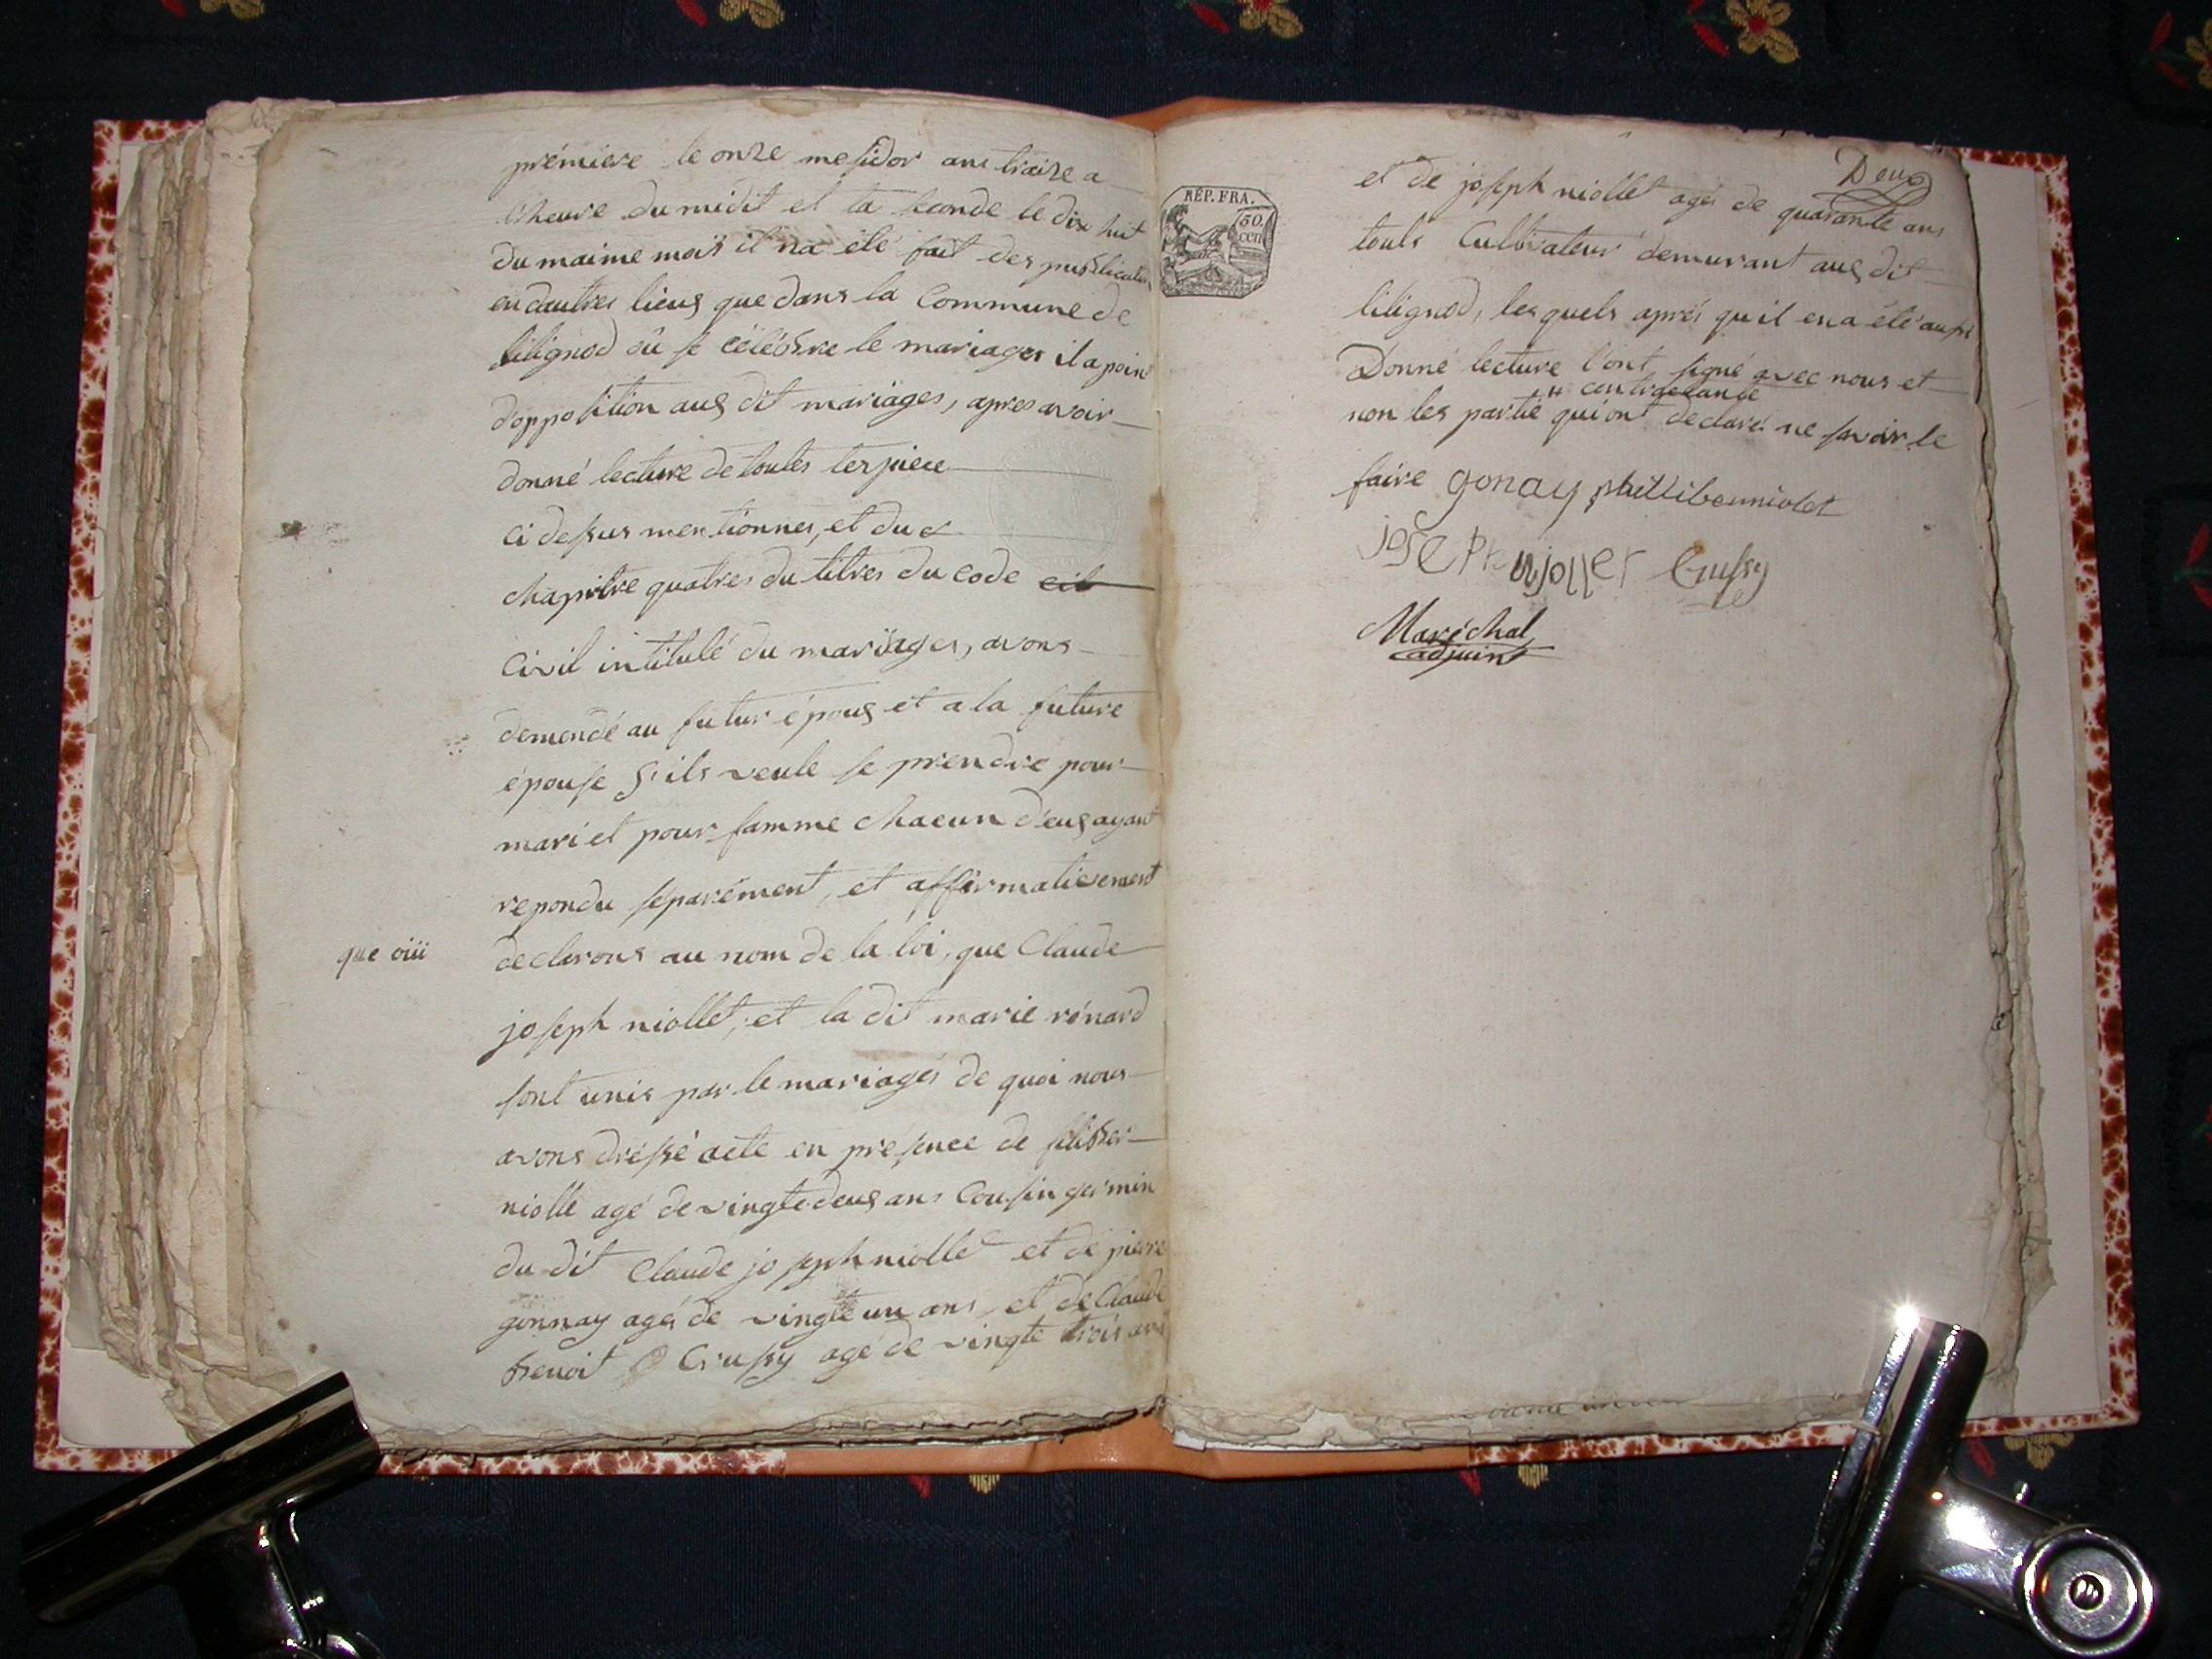 prémiere le onze mesidor ans traize a
l'heure du midit et la seconde le dix huit
du maime mois il na été fait des publication
en dautres lieus que dans la Commune de
lilignod oû se célébre le mariages il a point
d'oppotition aus dit mariages, apres avoir
donné lecture de toutes les piece
ci dessus mentionnes, et du
chapitre quatres du titres du code cib
civil intitulé du mariages, avons
demendé au futur épous et a la future
épouse s'ils veule se prendre pour
mari et pour famme chacun d'eus ayant
repondu séparément, et affirmativement
que oüi
declarons au nom de la loi, que Claude
joseph niollet, et la dit marie rénard
sont unis par le mariages de quoi nous
avons dressé acte en presence de
niolle agé de vingte deus ans Cousin germin
du dit Claude joseph niollet et de pierre
gonnay agés de vingte un ans et de Claude
benoit Crussy agé de vingte trois ans
RÉP. FRA.
50.
cen
Deux
et de joseph niollet agés de quarante ans
touts Cultivateur demurant aus dit
lilignod, les quels aprés quil en a été aussi
Donné lecture l'ont signé avec nous et
contractante
non les partie qui ont declaré ne savoir le
faire gonay phillibeuniolet
joseph niollet Crussy
Maréchal
adjuint